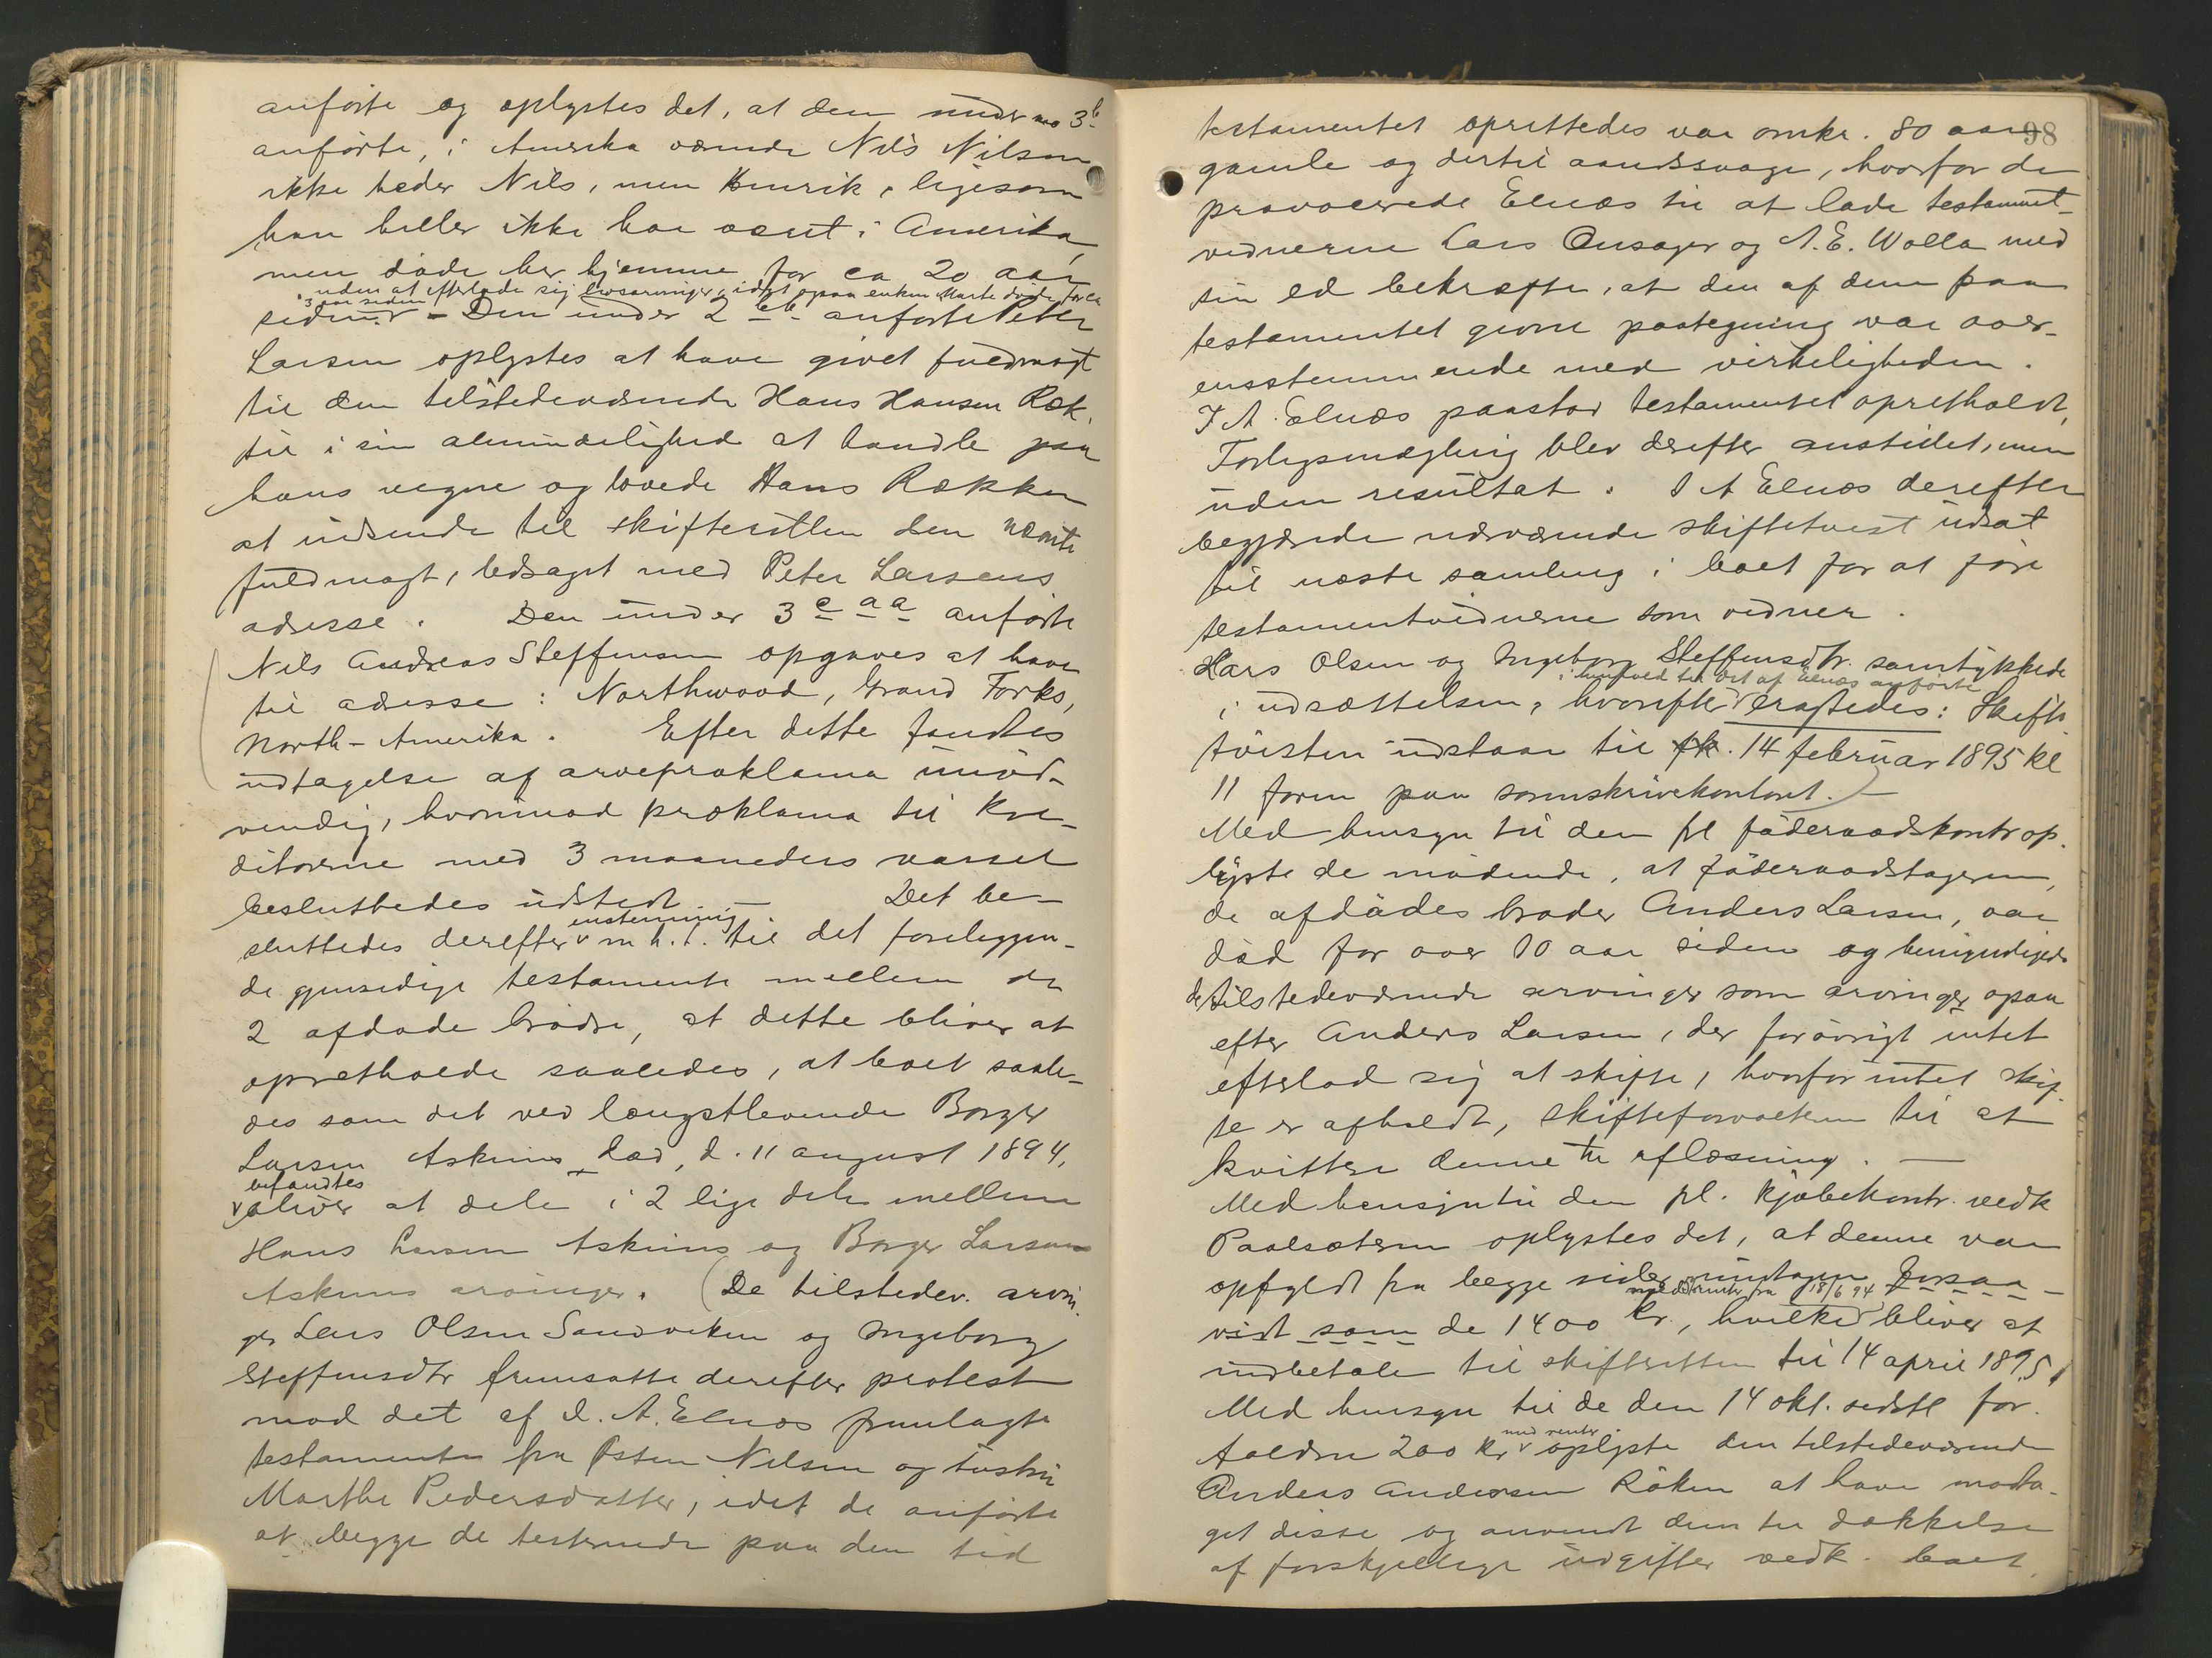 anførte og oplystes det, at den under no 3 b
anførte, i Amerika værende Nils Nilsen
ikke heder Nils, men Henrik, ligesom
han heller ikke har været i Amerika,
men døde her hjemme for ca 20 aar
uden at efterlade sig livsarvinger, idet ogsaa enken Marte døde for ca
3 aar siden
siden. - Den under 2 anførte Peter
Larsen oplystes at have givet fuldmagt
til den tilstedeværende Hans Hansen Ræk.
til i sin almindelighed at handle paa
hans vegne og lovede Hans Rækken
at indsende til skifteretten den nævnte
fuldmagt, ledsaget med Peter Larsens
adresse. Den under 3 c a a anførte
Nils Andreas Steffensen opgaves at have
til adresse: Northwood, Grand Forks,
North-Amerika. Efter dette fandtes
udtagelse af arveproklama unød-
vendig, hvorimod proklama til kre-
ditorerne med 3 maaneders varsel
besluttedes udstedt. — Det be-
enstemmig
sluttedes derefter m.h.t. til det foreliggen-
de gjensidige testamente mellem de
2 afdøde brødre, at dette bliver at
opretholde saaledes, at boet saale-
des som det ved længstlevende Borger
Larsen Askims død, d. 11 august 1894,
befandtes
bliver at dele i 2 lige dele mellem
Hans Larsen Askims og Borger Larsens
Askims arvinger. (De tilstedev. arvin-
ger Lars Olsen Sandviken og Ingeborg
Steffensdtr fremsatte derefter protest
mod det af I. A. Elnæs fremlagte
testamente fra Østen Nilsen og hustru
Marthe Pedersdatter, idet de anførte
at begge de testerende paa den tid
98
testamentet oprettedes var omkr. 80 aar
gamle og dertil aandssvage, hvorfor de
provocerede Elnæs til at lade testament-
vidnerne Lars Onsager og A. E. Wolla med
sin ed bekræfte, at den af dem paa
testamentet givne paategning var over-
ensstemmende med virkeligheden.
I A. Elnæs paastod testamentet opretholdt,
Forligsmægling blev derefter anstillet, men
uden resultat. I A Elnæs derefter
begjærede nærværende skiftetvist udsat
til næste samling i boet for at føre
testamentvidnerne som vidner.
Lars Olsen og Ingeborg Steffensdtr. samtykkede
i henhold til det af Elnæs anførte
i udsættelsen, hvorefter eragtedes: Skifte
tvisten udstaar til 14 februar 1895 kl
11 form paa sorenskriverkontoret.) —
Med hensyn til den pl føderaadskontr op.
lyste de mødende, at føderaadstageren,
de afdødes broder Anders Larsen, var
død for over 10 aar siden og bemyndigede
de tilstedeværende arvinger som arvinger ogsaa
efter Anders Larsen, der forøvrigt intet
efterlod sig at skifte, hvorfor intet skif-
te er afholdt, skifteforvalteren til at
kvittere denne til aflæsning. —
Med hensyn til den pl. kjøbekontr. vedk
Paalsæteren oplystes det, at denne var
opfyldt fra begge sider undtagen forsaa-
med renter fra 18/6 94
vidt som de 1400 kr., hvilke bliver at
indbetale til skifteretten til 14 april 1895.
Med hensyn til de den 14 okt. sidstl for-
med renter
faldne 200 kr oplyste den tilstedeværende
Anders Andersen Røken at have modta-
get disse og anvendt dem til dækkelse
af forskjellige udgifter vedk. boet.